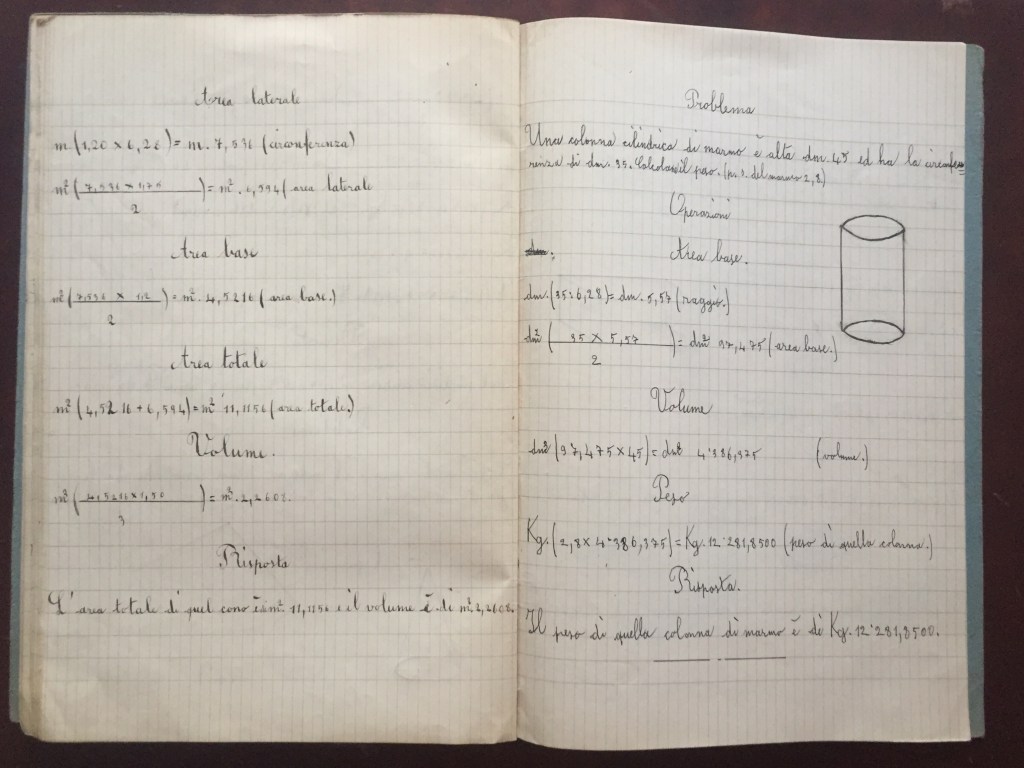 Area laterale
m.(1,20 x 6,28) = m. 7,536 (circonferenza)
m² ( 7,536 x 1,75 ) = m². 6,594 ( area laterale
2
Area base
m² ( 7,536 x 1,2 ) = m². 4,5216 ( area base.)
2
Area totale
m² ( 4,5216 + 6,594) = m² 11,1156 ( area totale.)
Volume.
m³ ( 4,5216 x 1,50 ) = m³. 2,2608.
3
Risposta
L'area totale di quel cono è di m² 11,1156 e il volume è di m³ 2,2608.
Problema
Una colonna cilindrica di marmo è alta dm. 45 ed ha la circonfe=
renza di dm. 35. Calcolare il peso. (p. s. del marmo 2,8)
Operazioni
Area base.
dm. (35:6,28) = dm. 5,57 (raggio.)
dm² ( 35 x 5,57 ) = dm² 97,475 (area base.)
2
Volume
dm³ (97,475 x 45) = dm³ 4˙386,375 (volume.)
Peso
Kg. (2,8 x 4˙386,375) = Kg. 12˙281,8500 (peso di quella colonna.)
Risposta.
Il peso di quella colonna di marmo è di Kg. 12˙281,8500.